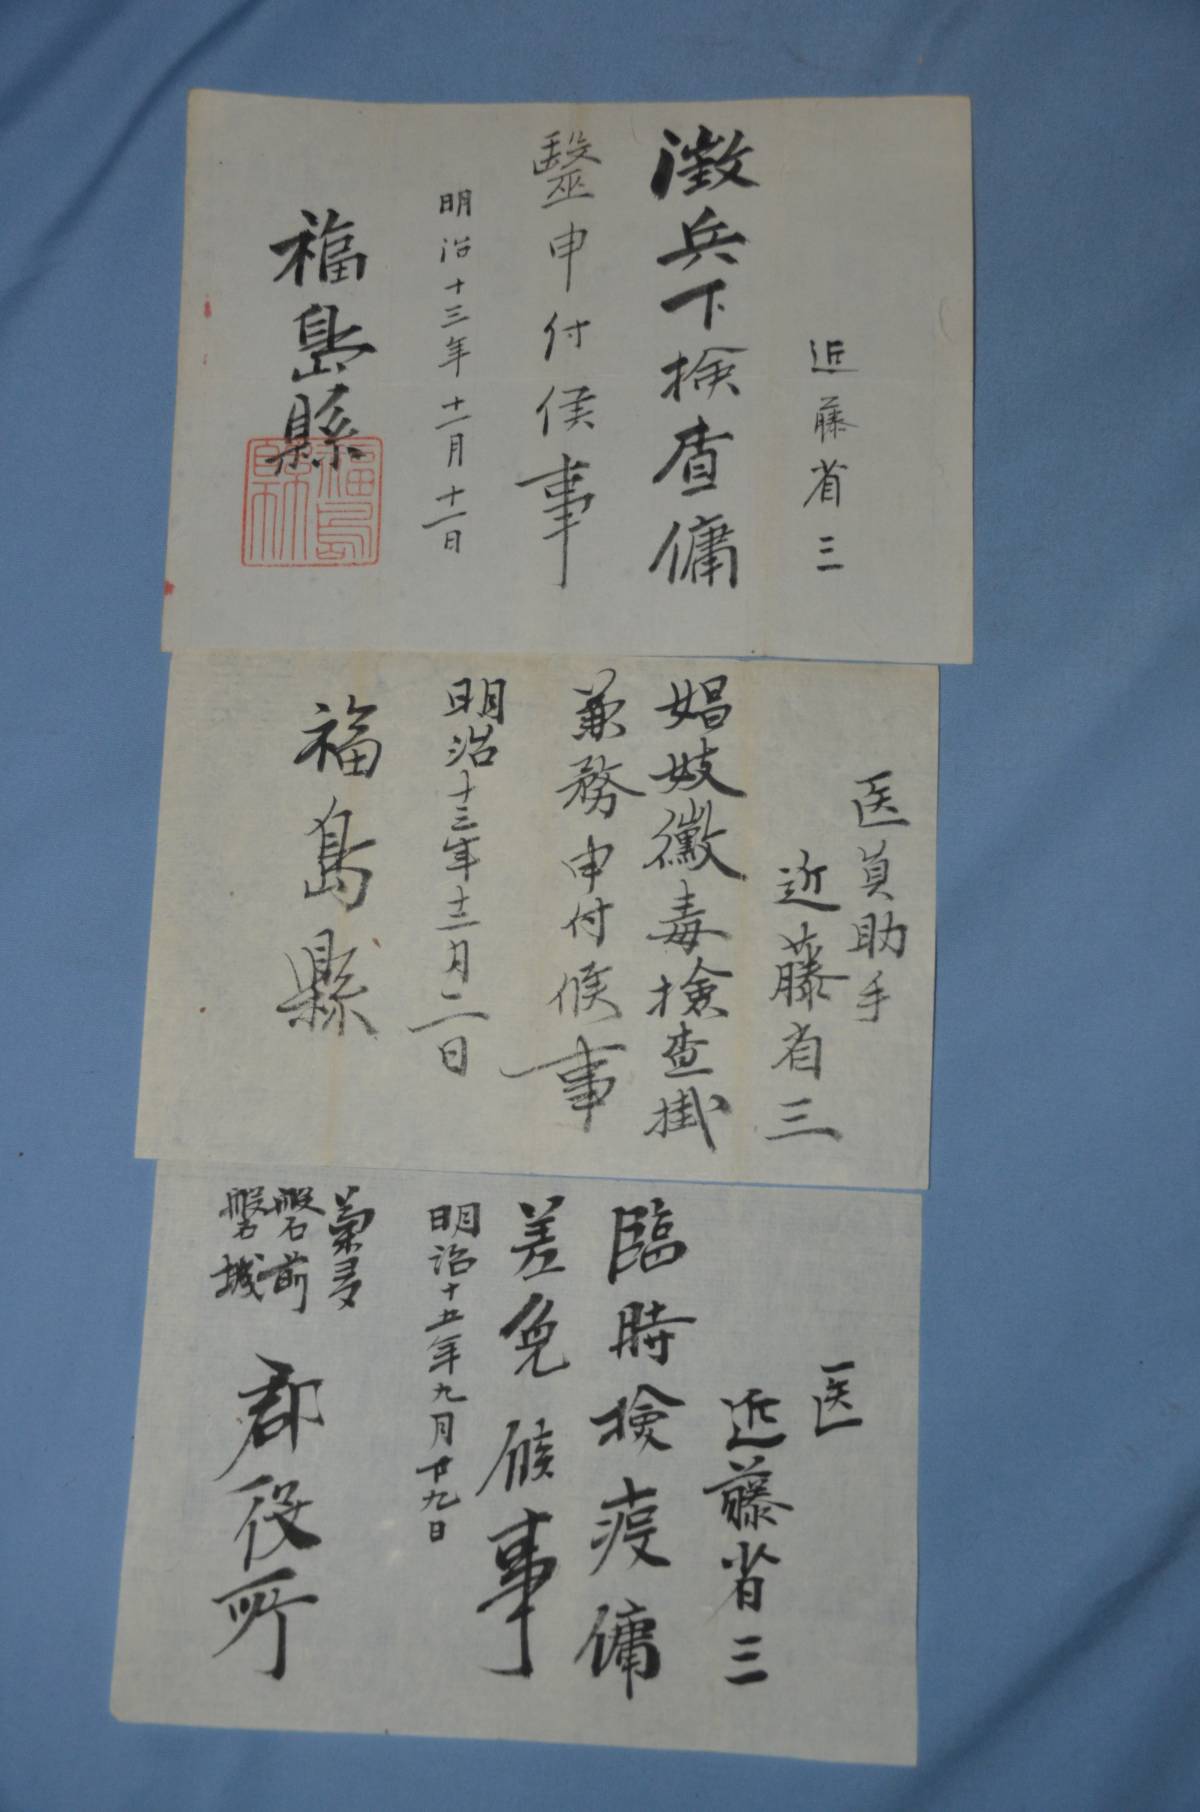 近藤省三
徴兵下検査傭
毉申付候事
明治十三年十一月十一日
福島縣
福島縣
医員助手
近藤省三
娼妓黴毒検査掛
兼務申付候事
明治十三年十二月二日
福島縣
医
近藤省三
臨時検疫傭
差免候事
明治十五年九月廿九日
菊多
磐前
磐城
郡役所